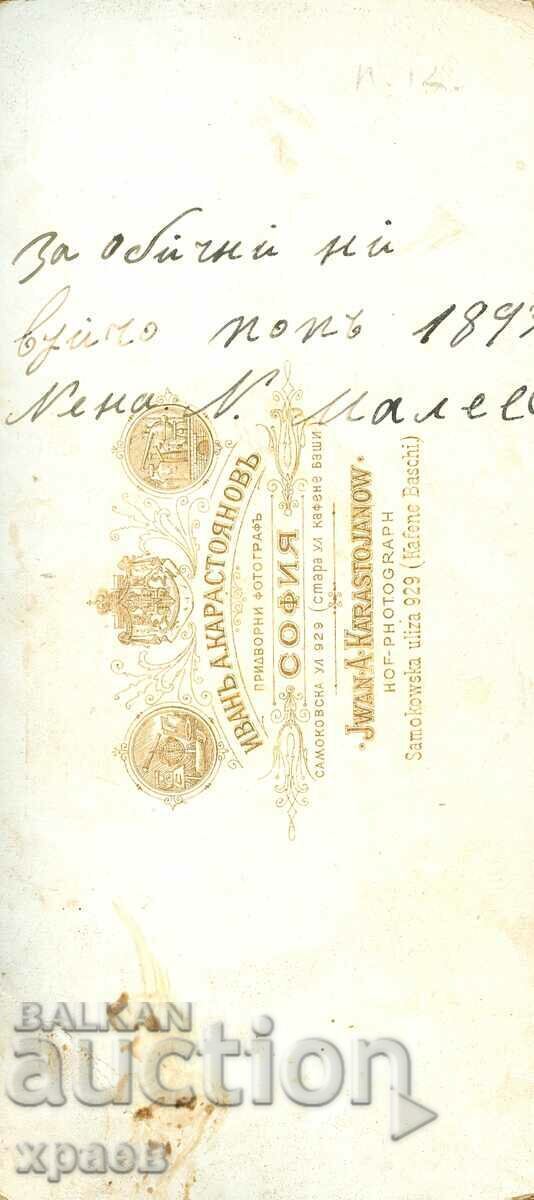 п. 12.
за обични ни
вуйчо попъ 1893
Нена N. Малеев
ИВАНЪ А. КАРАСТОЯНОВЪ
ПРИДВОРНИ ФОТОГРАФЪ
СОФИЯ
САМОКОВСКА УЛ 929 (стара ул кафене баши
JWAN·A·KARASTOJANOW·
HOF-PHOTOGRAPH
Samokowska uliza 929 (Kafene Baschi)
BALKAN
auction
храев